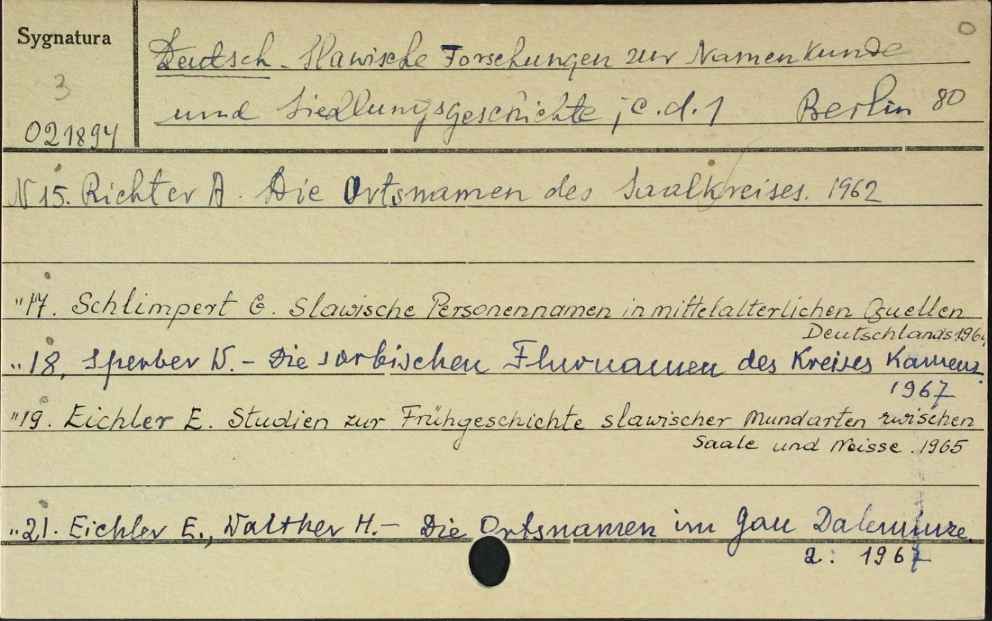 Sygnatura
3
021894
0
Deutsch-Slawische Forschungen zur Namenkunde
und Siedlungsgeschichte; c.d. 1 Berlin 80
N 15. Richter A. Die Ortsnamen des Saalkreises. 1962
"17. Schlimpert G. Slawische Personennamen in mittelalterlichen Quellen
Deutschlands 1964
"18, Sperber W. - Die sorbischen Flurnamen des Kreises Kamenz.
1967
"19. Eichler E. Studien zur Frühgeschichte slawischer Mundarten zwischen
Saale und Neisse. 1965
"21. Eichler E., Walther H. - Die Ortsnamen im Gau Daleminze.
2: 1967